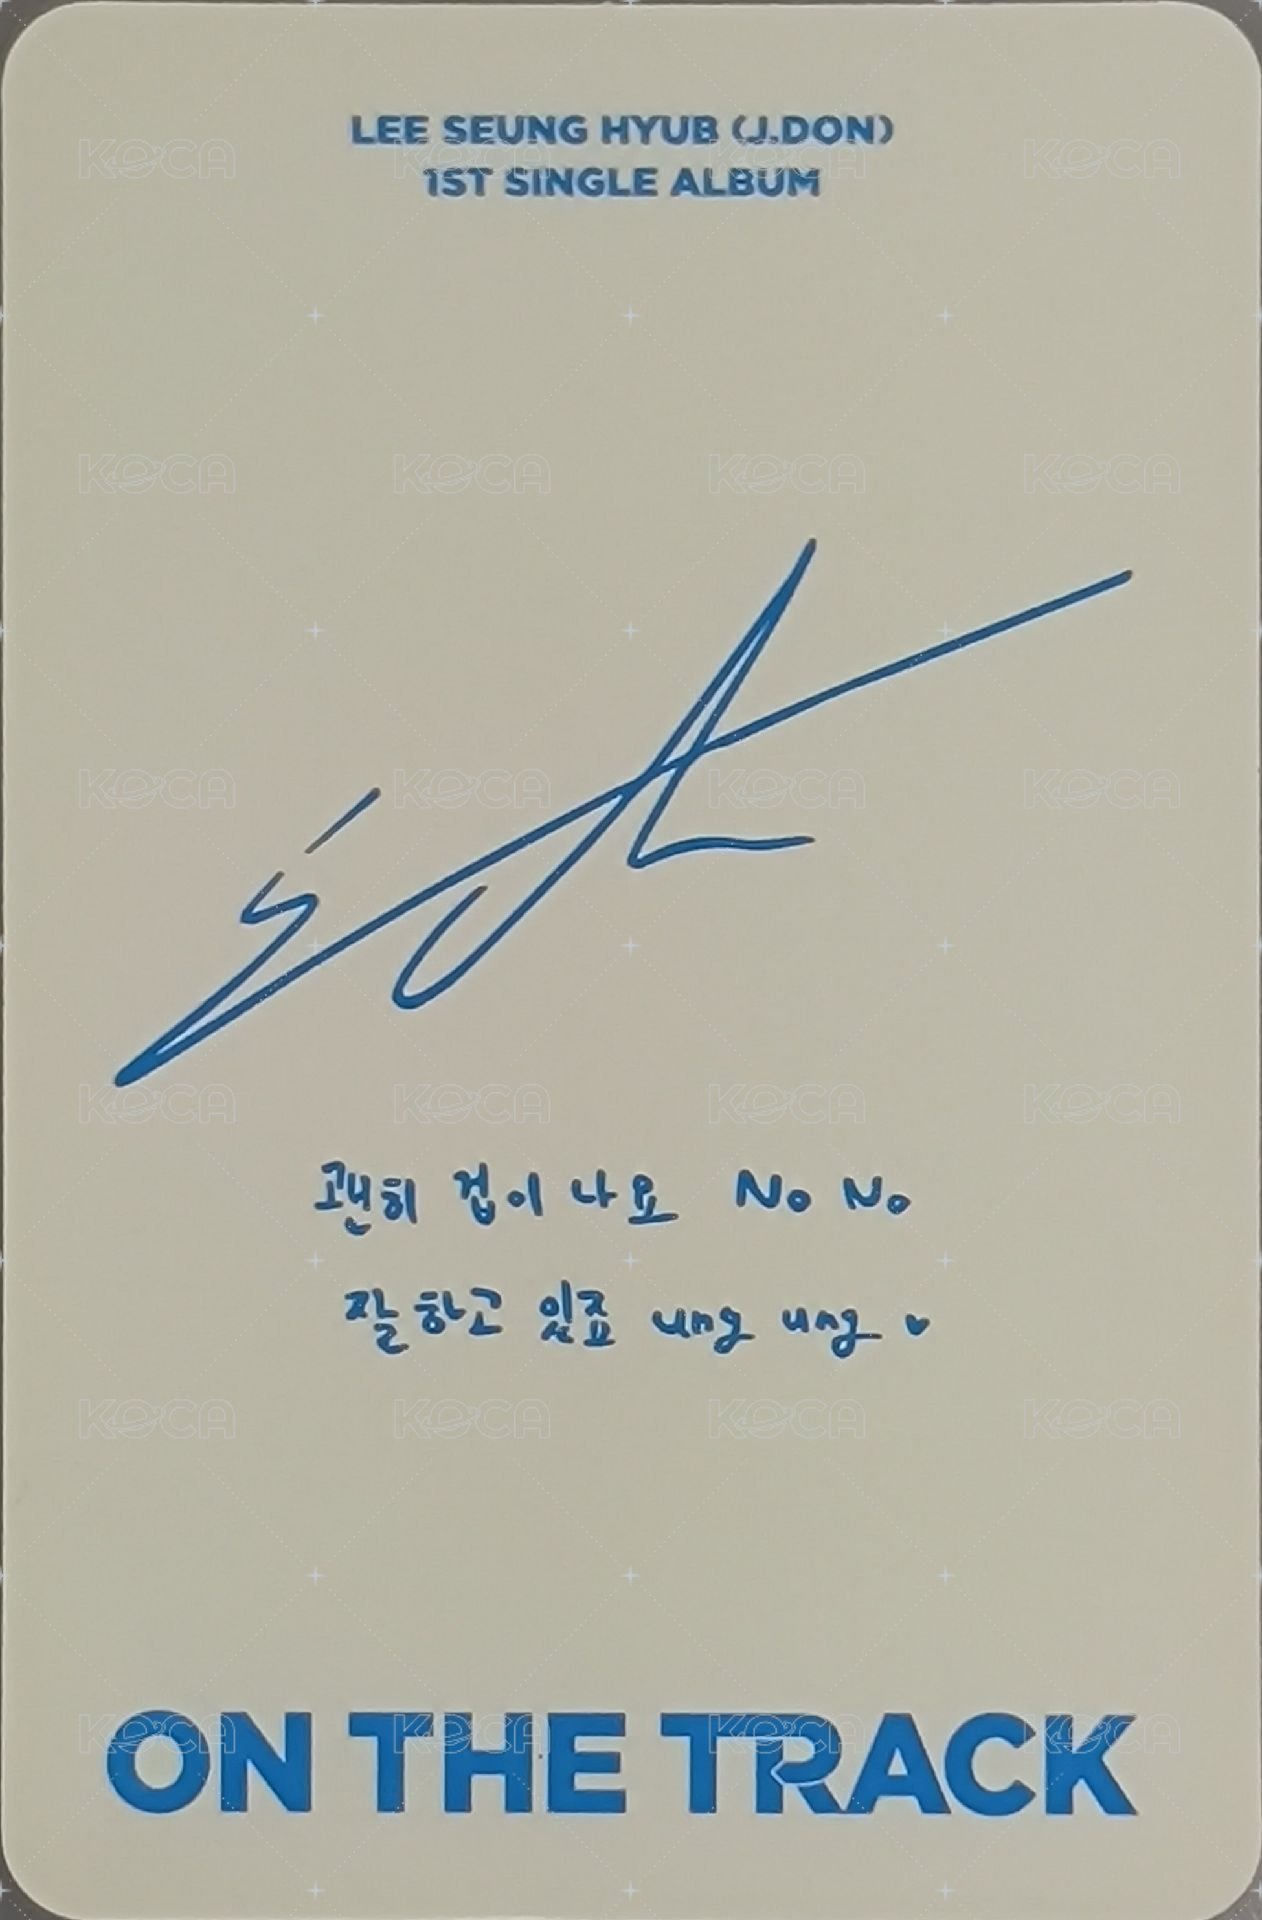 LEE SEUNG HYUB (J.DON)
1ST SINGLE ALBUM
괜히 겁이 나요 No No
잘하고 있죠 ung ung ♥
ON THE TRACK
KOCA